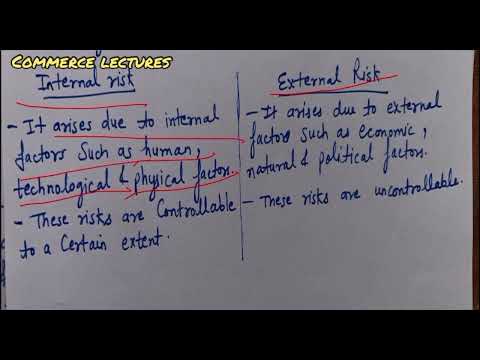 COMMERCE LECTURES
Internal risk
- It arises due to internal
factors such as human,
technological & physical factors.
- These risks are Controllable
to a Certain extent.
External Risk
- It arises due to external
factors such as economic,
natural & political factors.
- These risks are uncontrollable.